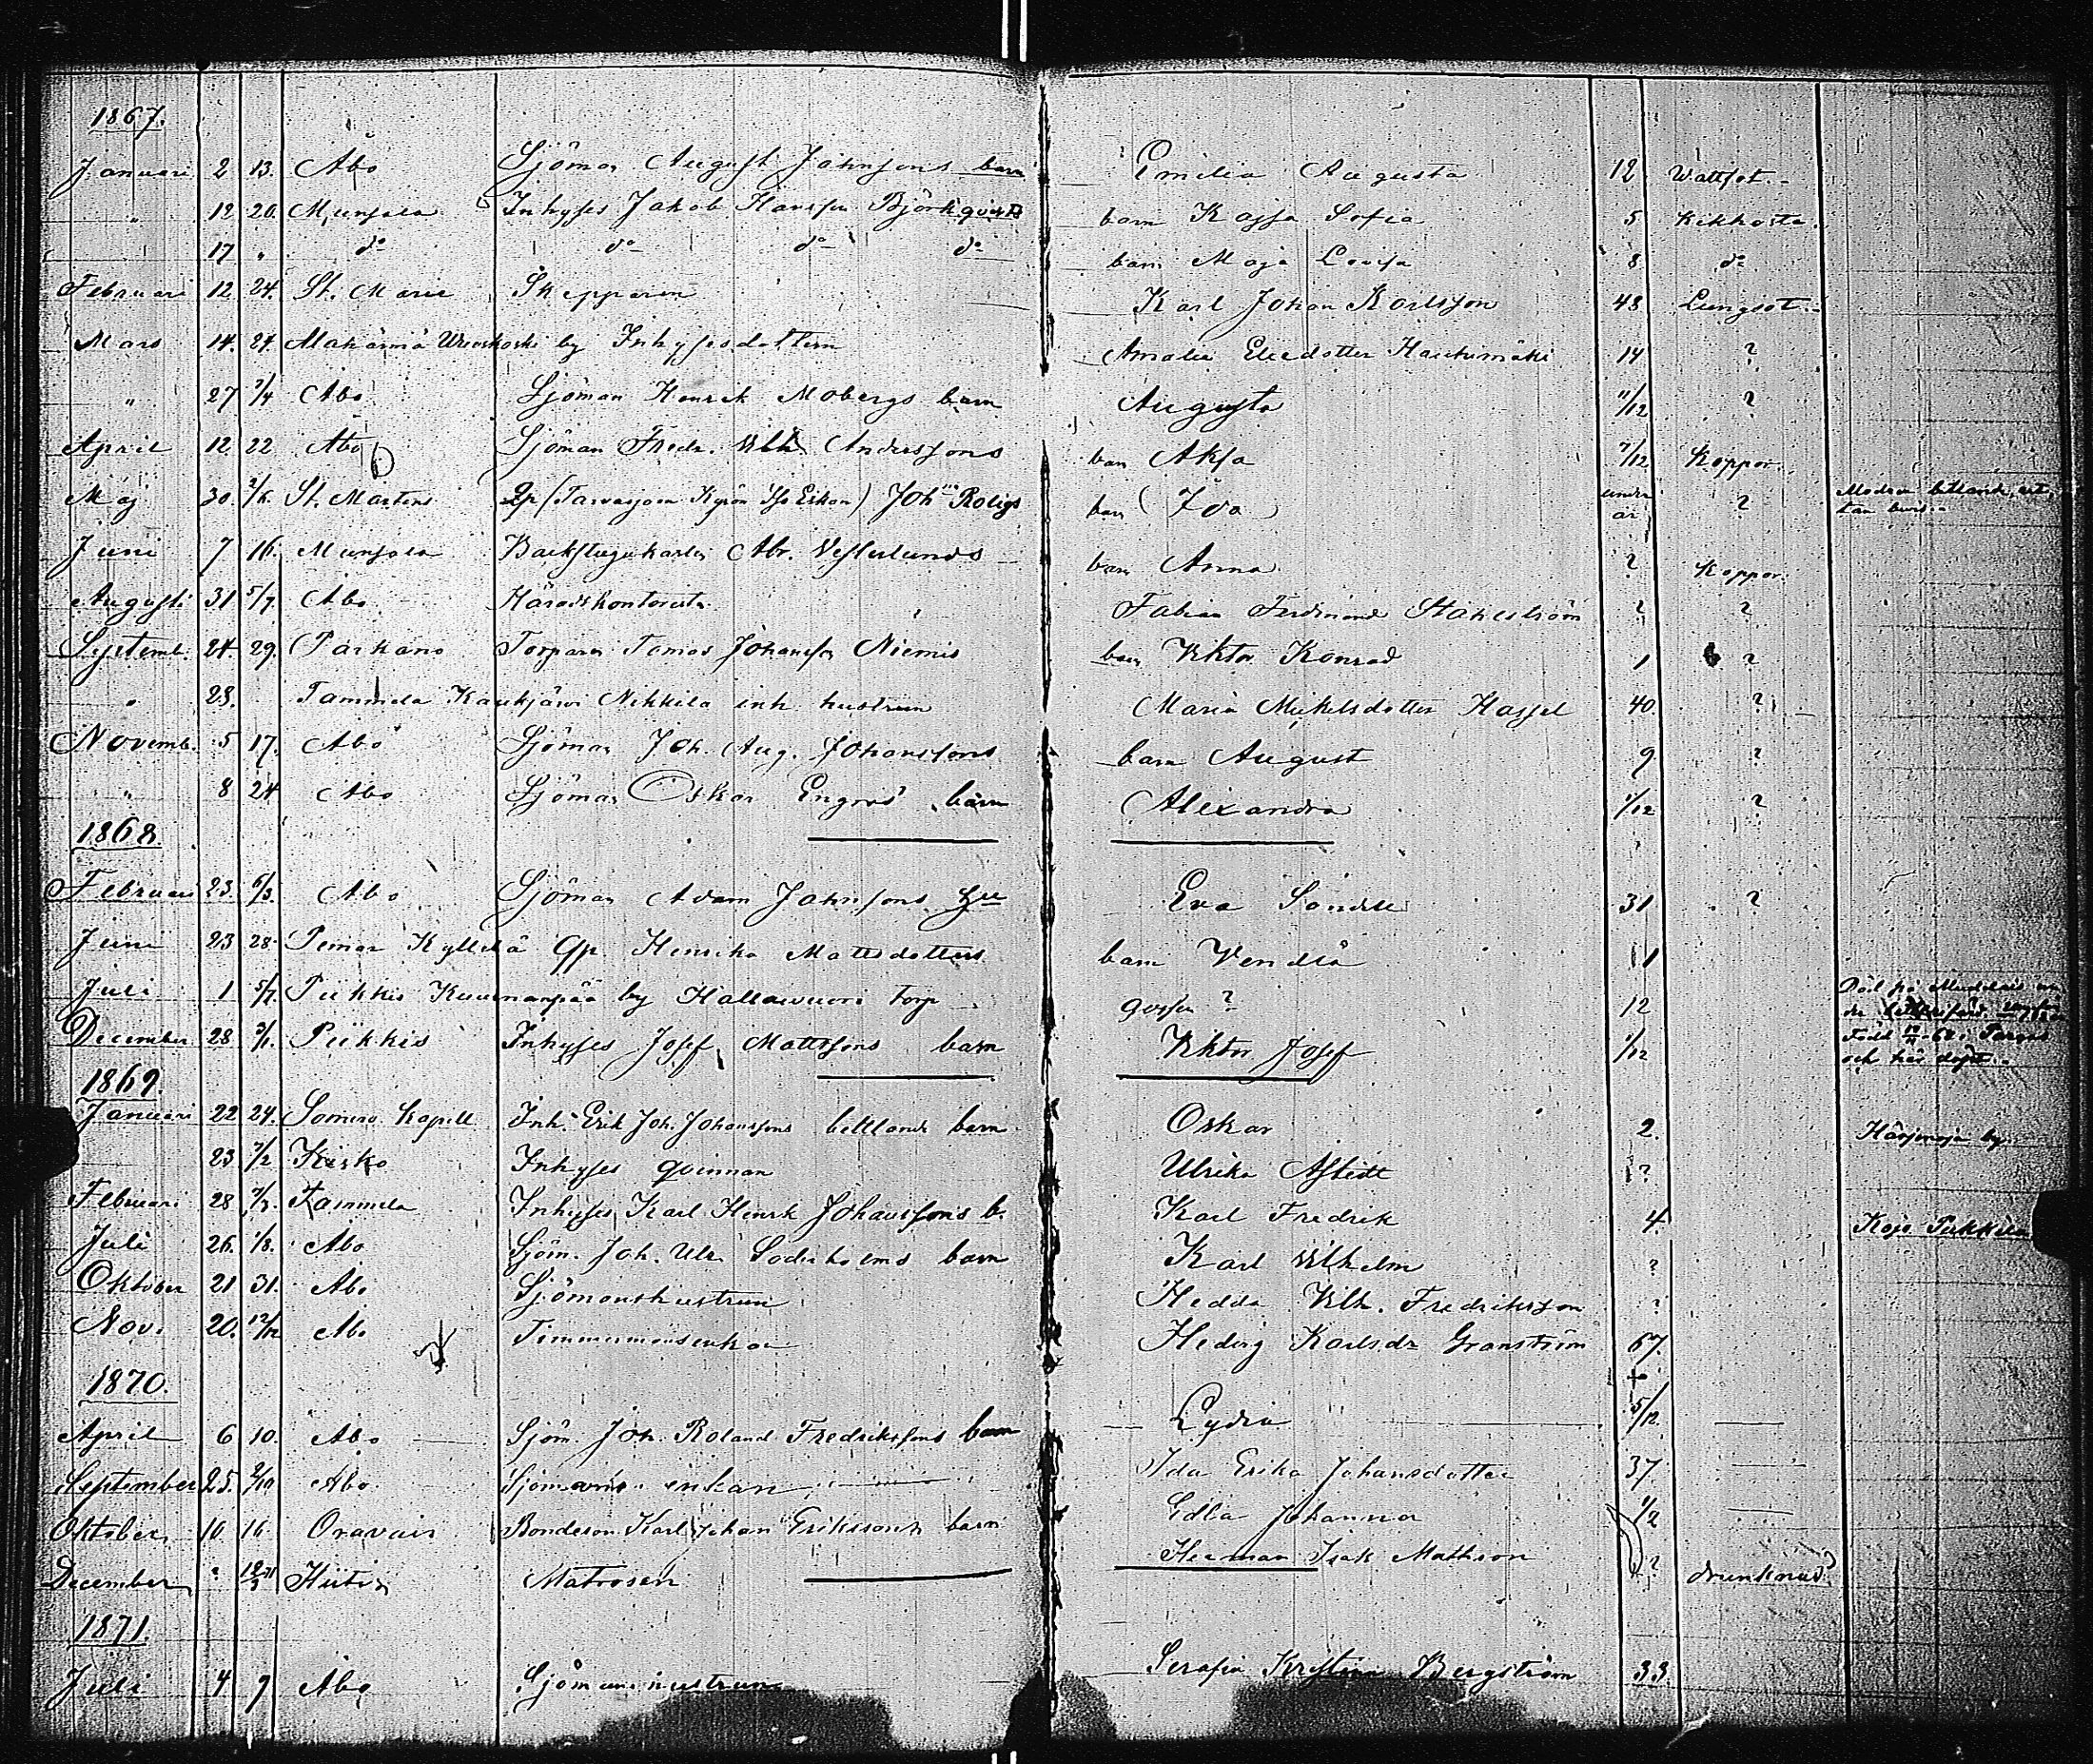 1867.
Januari 2 13. Åbo Sjöman August Jahnssons barn Emilia Augusta 12 Wattsot.
" 12 20. Munsala Inhyses Jakob Hansson Björkqvists barn Kajsa Sofia 5 Kikhosta.
17 " do do do do barn Maja Lovisa 8 do
Februari 12 24. St. Marie Skepparen Karl Johan Karlsson 48 Lungsot.
Mars 14. 24. by Inhysesdottern Amalia Hautamäki 14 ?
" 27 7/4 Åbo Sjöman Henrik Mobergs barn Augusta 11/12 ?
April 12 22 Åbo Sjöman Fredr. Vilh. Anderssons barn Aksa 7/12 Koppor.
Maj 30. 2/6 St. Mårtens Qp (Tarvasjoen Kyrön Eskon) Joh:na Roligs barn Ida under år ? Modren bettlande,
Juni 7 16. Munsala Backstugukarlen Abr. Vesterlunds barn Anna ? Koppor.
Augusti 31 5/9. Åbo Häradskontorista Fabian Ferdinand Ståhlström ? ?
Septemb. 24. 29. Parkano Torparen Tomas Johansson Niemis barn Viktor Konrad 1 ?
" 28. Tammela Kaukjärvi Nikkilä inh. hustrun Maria Mickelsdotter Hassel 40. ?
Novemb. 5 17. Åbo Sjöman Joh. Aug. Johanssons barn August 9 ?
" 8 24 Åbo Sjöman Oskar Engros barn Alexandra 1/12 ?
1868.
Februari 23. 6/3. Åbo Sjöman Adam Jahnssons hu Eva 31 ?
Juni 23 28. Pemar Kyllilä Qp. Henrika Mattsdotters barn Vendla 1
Juli 1 5/7. Piikkis Kuusnanpää by Hallavuori torp gossen ? 12 Död på
December 28. 3/1. Piikkis Inhyses Josef Mattssons barn Viktor Josef 1/12 Född i Pargas och här döpt.
1869.
Januari 22 24. Somero Kapell Inh. Erik Joh. Johanssons bettlande barn Oskar 2. by
23 7/2 Kisko Inhyses qvinnan Ulrika ?
Februari 28 7/3. Tammela Inhyses Karl Henrik Johanssons b. Karl Fredrik 4.
Juli 26. 1/8. Åbo Sjöm. Joh. Ulr. Söderholms barn Karl Vilhelm ?
Oktober 21 31. Åbo Sjömanshustrun Hedda Vilh. Fredriksson ?
Nov. 20. 12/12 Åbo Timmermansenkan Hedvig Karlsdr Granström 67.
1870.
April 6 10. Åbo Sjöm. Joh. Roland Fredrikssons barn Lydia 5/12
September 25. 2/10 Åbo Sjömans enkan Ida Erika Johansdotter 37
Oktober 10. 16 Oravais Bondeson Karl Johan Erikssons barn Edla Johanna 1/2
December ? Hitis Matrosen Herman Isak Mattsson ? drunknad?
1871.
Juli 4 9 Åbo Sjömanshustrun Serafia Kristina Bergström 33.